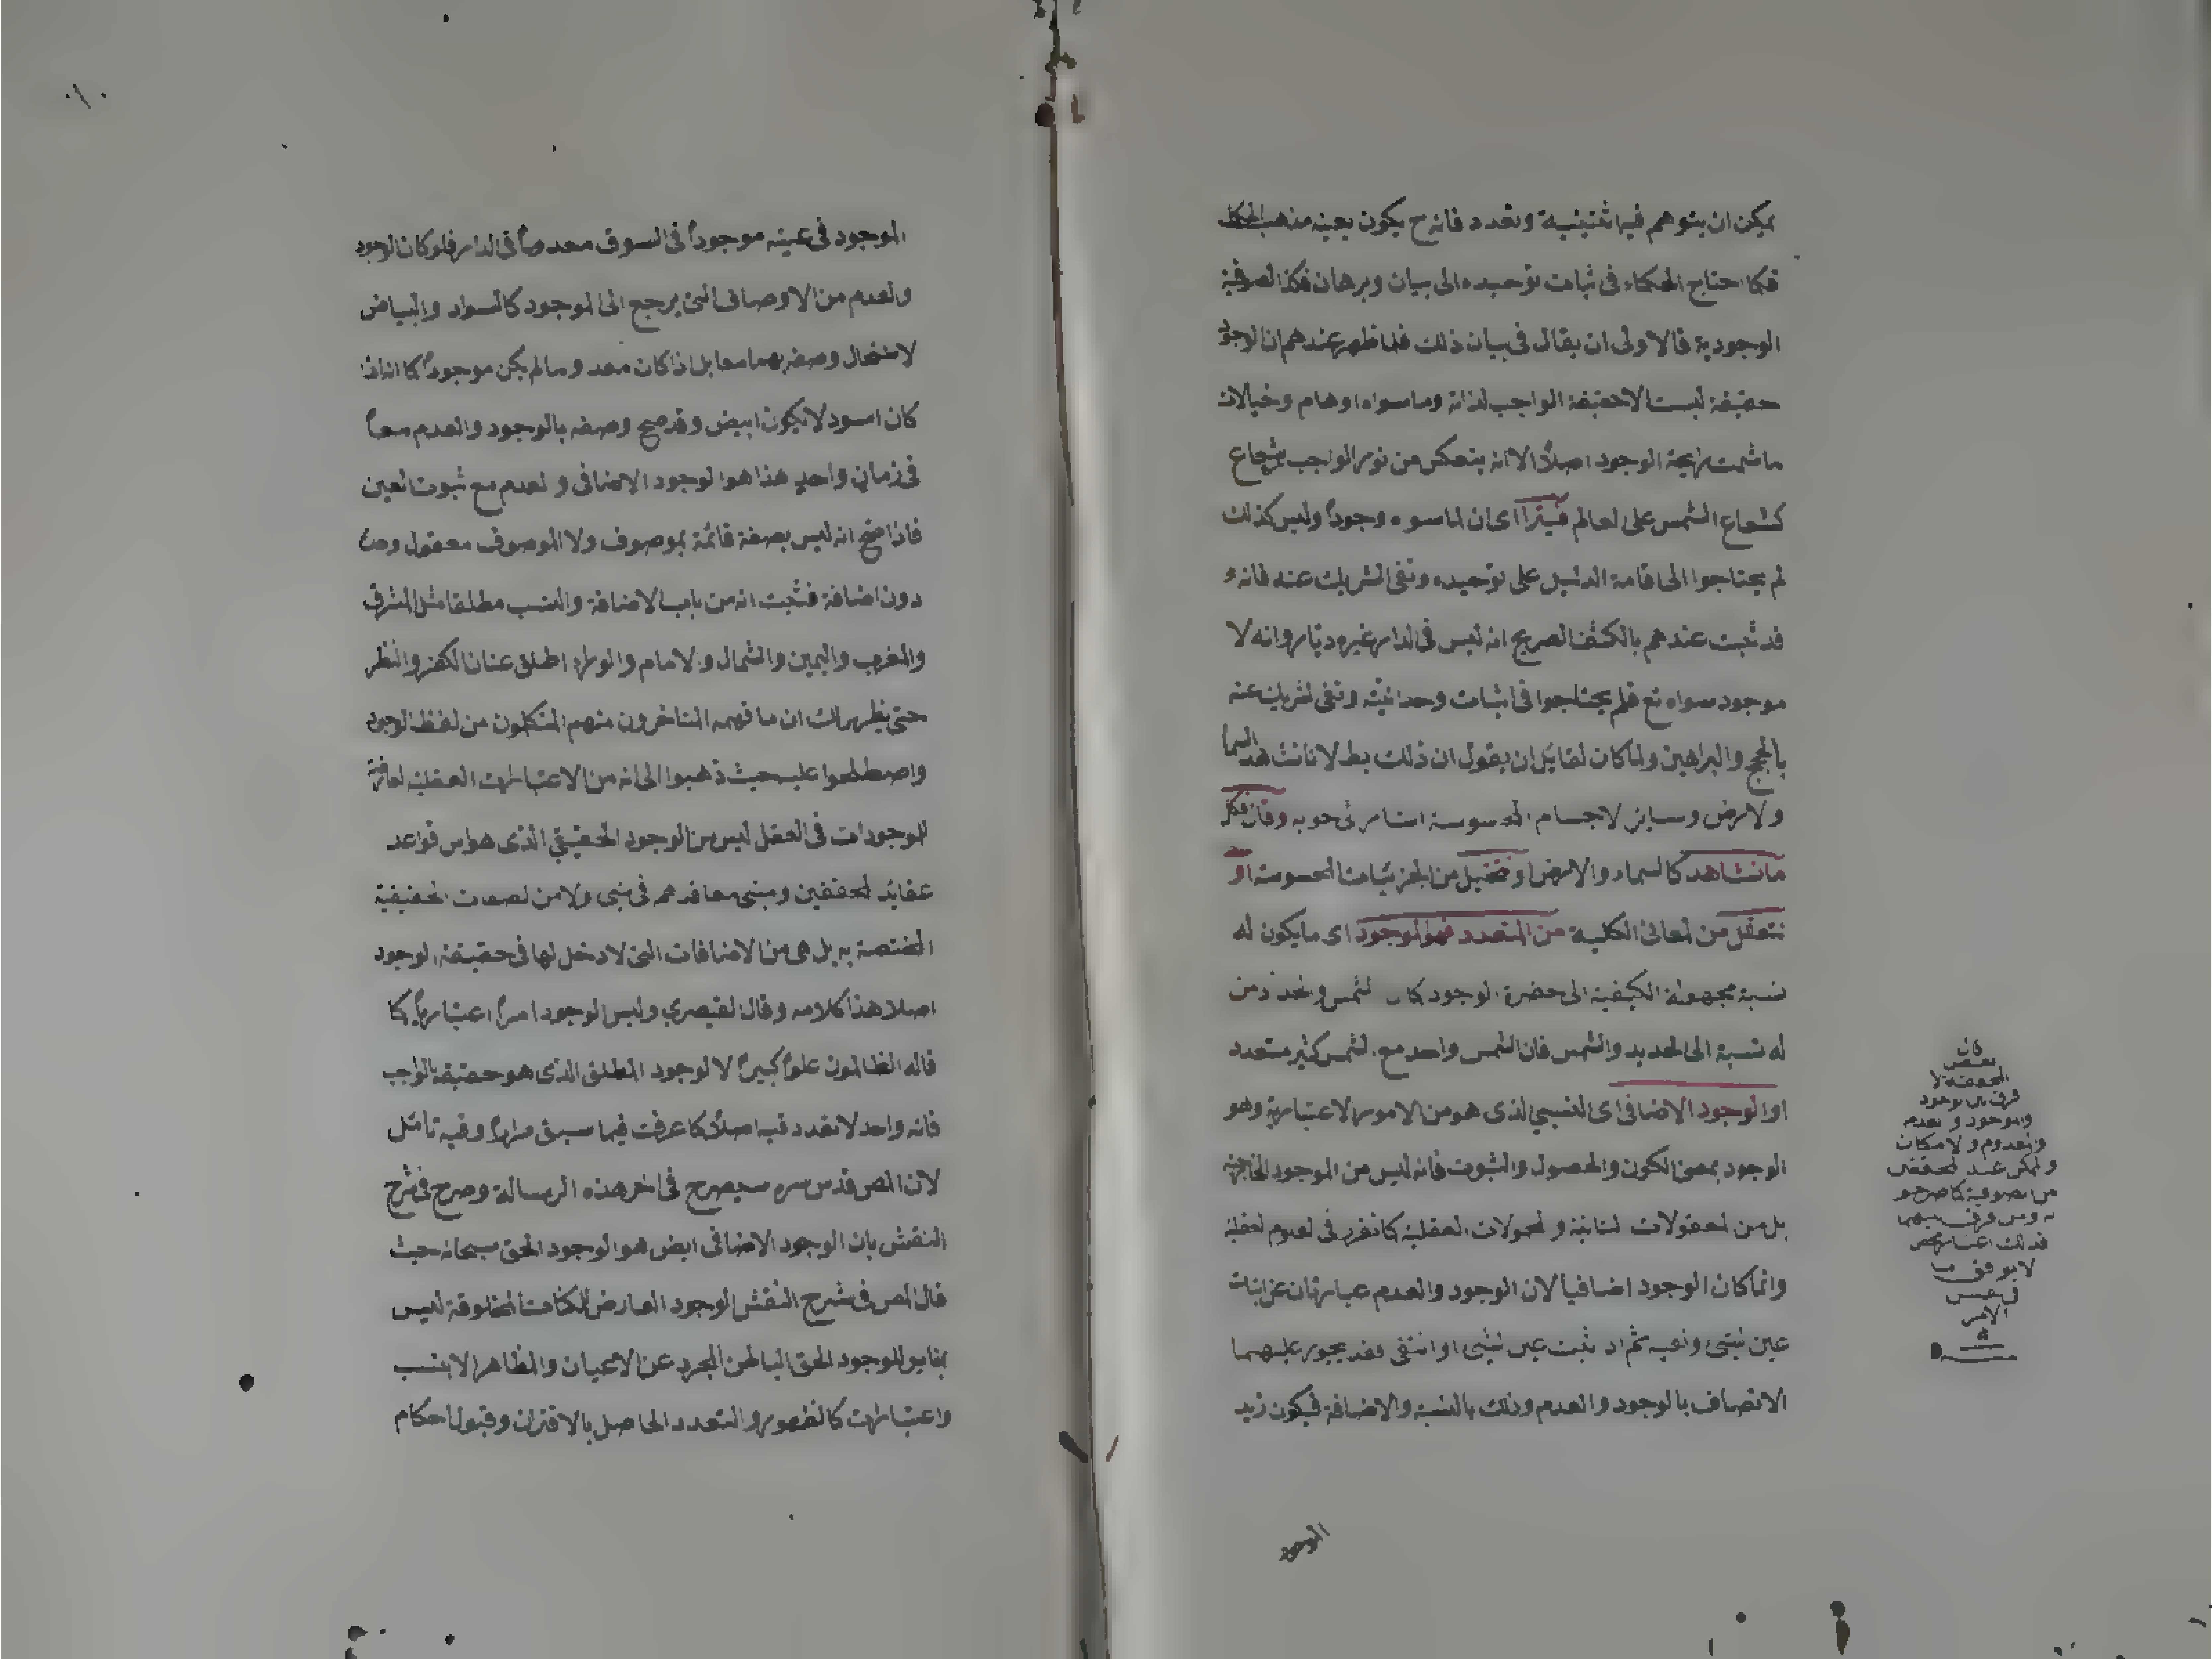 يمكن ان يتوهم فيها تثنيية وتعدد فانه ح يكون بعينه مذهب الحكما
فكما احتاج الحكماء فى اثبات توحيده الى بيان وبرهان فكذا الصوفية
الوجودية فالاولى ان يقال فى بيان ذلك فلما ظهر عندهم ان الوجود
حقيقة ليست الا حقيقة الواجب لذاته وما سواه اوهام وخيالات
ما شمت رايحة الوجود اصلاً الا انه ينعكس من نور الواجب شعاع
كشعاع الشمس على العالم اى ان لما سوه وجوداً وليس كذلك
لم يحتاجوا الى اقامة الدليل على توحيده ونفى الشريك عنه فانه
قد ثبت عندهم بالكشف الصريح انه ليس فى الدار غيره ديار وانه لا
موجود سواه تع فلم يحتاجوا فى اثبات وحدانيته ونفى الشريك عنه
بالحجج والبراهين ولما كان لقايل ان يقول ان ذلك بط لانا نشاهد السما
والارض وساير الاجسام المحسوسة اشار الى جوابه وقال فكل
ما نشاهد كالسماء والارض او نتخيل من الجزئيات المحسوسة او
نتعقل من المعانى الكلية من المتعدد فهو الموجود اى ما يكون له
نسبة مجهولة الكيفية الى حضرة الوجود كا لمشمس والحداد من
له نسبة الى الحديد والشمس فان الشمس واحد مع المشمس كثير متعدد
او الوجود الاضافى اى النسبي الذى هو من الامور الاعتبارية وهو
الوجود بمعنى الكون والحصول والثبوت فانه ليس من الموجود الخارجية
بل من المعقولات الثانية والمحمولات العقلية كما تقرر فى العلوم العقلية
وانما كان الوجود اضافيا لان الوجود والعدم عبارتان عن اثبات
عين الشى ونفيه ثم اذ ثبت عين الشى او انتفى فقد يجوز عليهما
الاتصاف بالوجود والعدم وذلك بالنسبة والاضافة فيكون زيد
قال
بعض
المحققة لا
فرق بين الوجود
والموجود والعدم
والمعدوم والامكان
والممكن عند المحققين
من الصوفية كما صرحو
به ومن فرق بينهما
فذلك اعتبار محض
لا يوافق ما
فى نفس
الامر
الموجود
١٠
الموجود فى عينه موجوداً فى السوق معدوماً فى الدار فلو كان الوجود
والعدم من الاوصاف التى يرجع الى الموجود كالسواد والبياض
لاستحال وصفه بهما معا بل اذا كان معدوما لم يكن موجوداً كما انه اذا
كان اسود لا يكون ابيض وقد صح وصفه بالوجود والعدم معاً
فى زمان واحد هذا هو الوجود الاضافى والعدم مع ثبوت العين
فاذا صح انه ليس بصفة قائمة بموصوف ولا الموصوف معقول وحده
دون اضافة فثبت انه من باب الاضافة والنسب مطلقا مثل المشرق
والمغرب واليمين والشمال والامام والوراء اطلق عنان الفكر والنظر
حتى يظهر لك ان ما فهمه المتاخرون منهم المتكلمون من لفظ الوجود
واصطلحوا عليه حيث ذهبوا الى انه من الاعتبارات العقلية العارضة
للموجودات فى العقل ليس من الوجود الحقيقي الذى هو اس قواعد
عقايد المحققين ومبنى معاقدهم فى شى ولا من الصفات الحقيقية
المختصة به بل هى من الاضافات التى لا دخل لها فى حقيقة الوجود
اصلا هذا كلامه وقال القيصري وليس الوجود امراً اعتبارياً كما
قاله الظالمون علواً كبيراً لا الوجود المطلق الذى هو حقيقة الواجب
فانه واحد لا تعدد فيه اصلاً كما عرفت فيما سبق مراراً وفيه تامل
لان المص قدس سره سيصرح فى اخر هذه الرسالة وصرح فى شرح
النقش بان الوجود الاضافى ايض هو الوجود الحق سبحانه حيث
قال المص فى شرح النقش الوجود العارض للمكنات المخلوقة ليس
بمغاير للوجود الحق الباطن المجرد عن الاعيان والمظاهر الا بنسب
واعتبارات كالظهور والتعدد الحاصل بالاقتران وقبول احكام